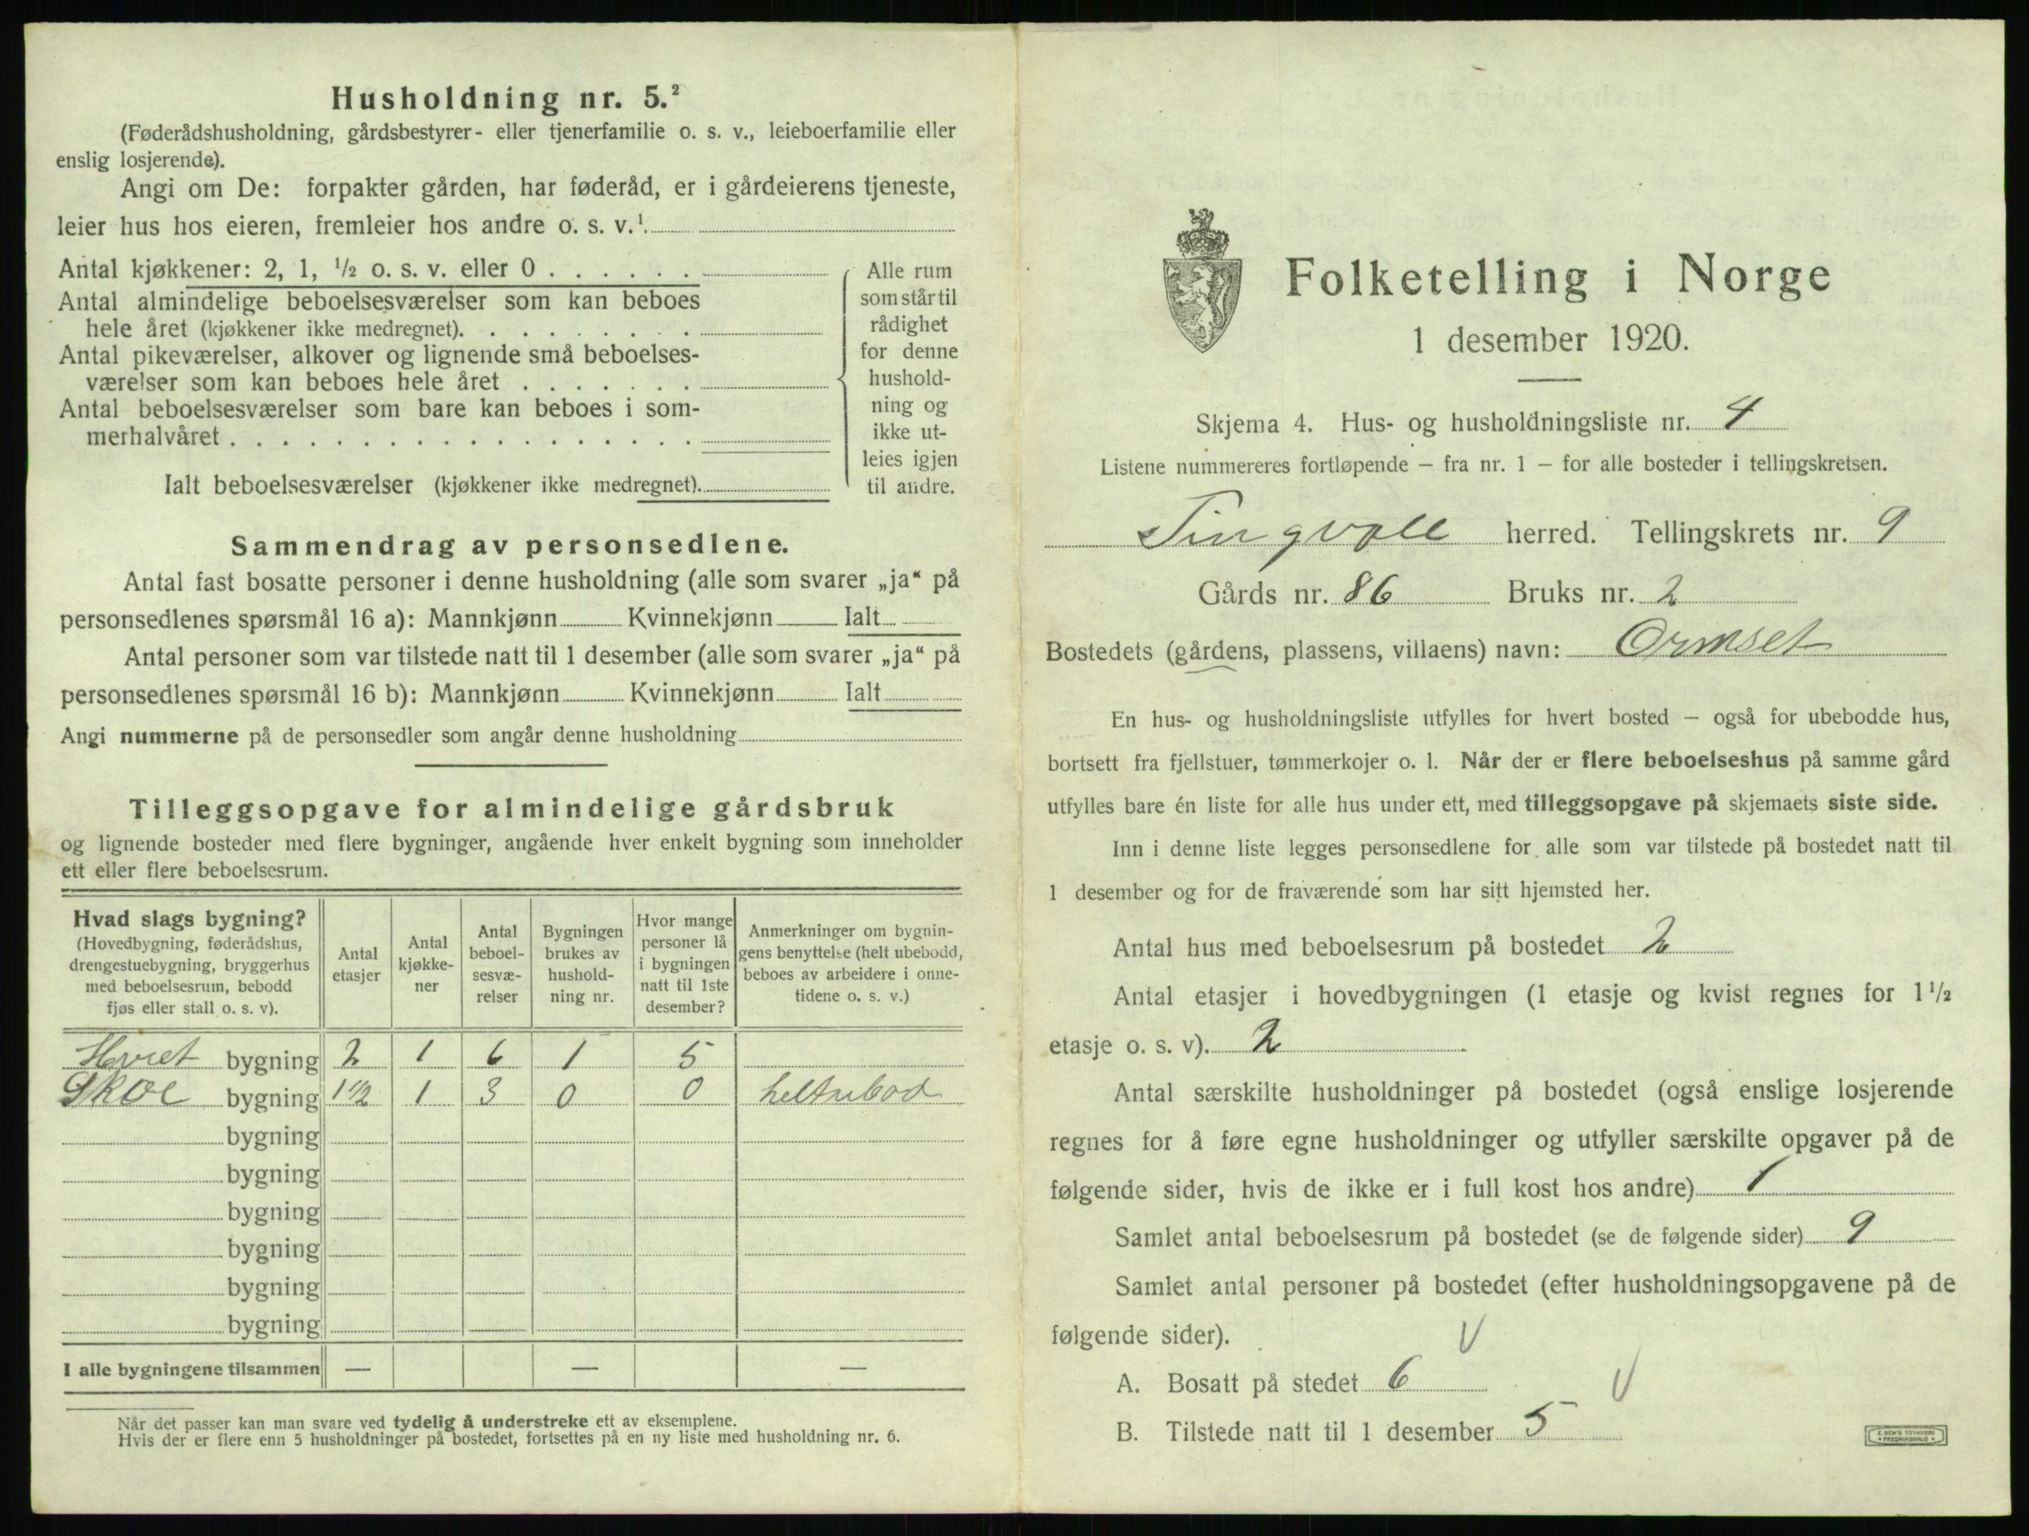 Husholdning nr. 5.²
(Føderådshusholdning, gårdsbestyrer- eller tjenerfamilie o. s. v., leieboerfamilie eller
enslig losjerende).
Angi om De: forpakter gården, har føderåd, er i gårdeierens tjeneste,
leier hus hos eieren, fremleier hos andre o. s. v.¹
Antal kjøkkener: 2, 1, ½ o. s. v. eller 0
Antal almindelige beboelsesværelser som kan beboes
hele året (kjøkkener ikke medregnet).
Antal pikeværelser, alkover og lignende små beboelses-
værelser som kan beboes hele året
Antal beboelsesværelser som bare kan beboes i som-
merhalvåret
Ialt beboelsesværelser (kjøkkener ikke medregnet).
Alle rum
som står til
rådighet
for denne
hushold-
ning og
ikke ut-
leies igjen
til andre.
Sammendrag av personsedlene.
Antal fast bosatte personer i denne husholdning (alle som svarer „ja“ på
personsedlenes spørsmål 16 a): Mannkjønn Kvinnekjønn Ialt
Antal personer som var tilstede natt til 1 desember (alle som svarer „ja“ på
personsedlenes spørsmål 16 b): Mannkjønn Kvinnekjønn Ialt
Angi nummerne på de personsedler som angår denne husholdning
Tilleggsopgave for almindelige gårdsbruk
og lignende bosteder med flere bygninger, angående hver enkelt bygning som inneholder
ett eller flere beboelsesrum.
Hvad slags bygning?
(Hovedbygning, føderådshus,
drengestuebygning, bryggerhus
med beboelsesrum, bebodd
fjøs eller stall o. s. v).
Antal
etasjer
Antal
kjøkke-
ner
Antal
beboel-
sesvæ-
relser
Bygningen
brukes av
hushold-
ning nr.
Hvor mange
personer lå
i bygningen
natt til 1ste
desember?
Anmerkninger om bygnin-
gens benyttelse (helt ubebodd,
beboes av arbeidere i onne-
tidene o. s. v.)
bygning 2 1 6 1 5
bygning 1½ 1 3 0 0
bygning
bygning
bygning
bygning
bygning
bygning
I alle bygningene tilsammen — — —
Når det passer kan man svare ved tydelig å understreke ett av eksemplene.
Hvis der er flere enn 5 husholdninger på bostedet, fortsettes på en ny liste med husholdning nr. 6.
Folketelling i Norge
1 desember 1920.
Skjema 4. Hus- og husholdningsliste nr. 4
Listene nummereres fortløpende – fra nr. 1 – for alle bosteder i tellingskretsen.
Tingvoll herred. Tellingskrets nr. 9
Gårds nr. 86 Bruks nr. 2
Bostedets (gårdens, plassens, villaens) navn: Ormset
En hus- og husholdningsliste utfylles for hvert bosted – også for ubebodde hus,
bortsett fra fjellstuer, tømmerkojer o. l. Når der er flere beboelseshus på samme gård
utfylles bare én liste for alle hus under ett, med tilleggsopgave på skjemaets siste side.
Inn i denne liste legges personsedlene for alle som var tilstede på bostedet natt til
1 desember og for de fraværende som har sitt hjemsted her.
Antal hus med beboelsesrum på bostedet 2
Antal etasjer i hovedbygningen (1 etasje og kvist regnes for 1½
etasje o. s. v). 2
Antal særskilte husholdninger på bostedet (også enslige losjerende
regnes for å føre egne husholdninger og utfyller særskilte opgaver på de
følgende sider, hvis de ikke er i full kost hos andre) 1
Samlet antal beboelsesrum på bostedet (se de følgende sider) 9
Samlet antal personer på bostedet (efter husholdningsopgavene på de
følgende sider).
A. Bosatt på stedet 6
B. Tilstede natt til 1 desember 5